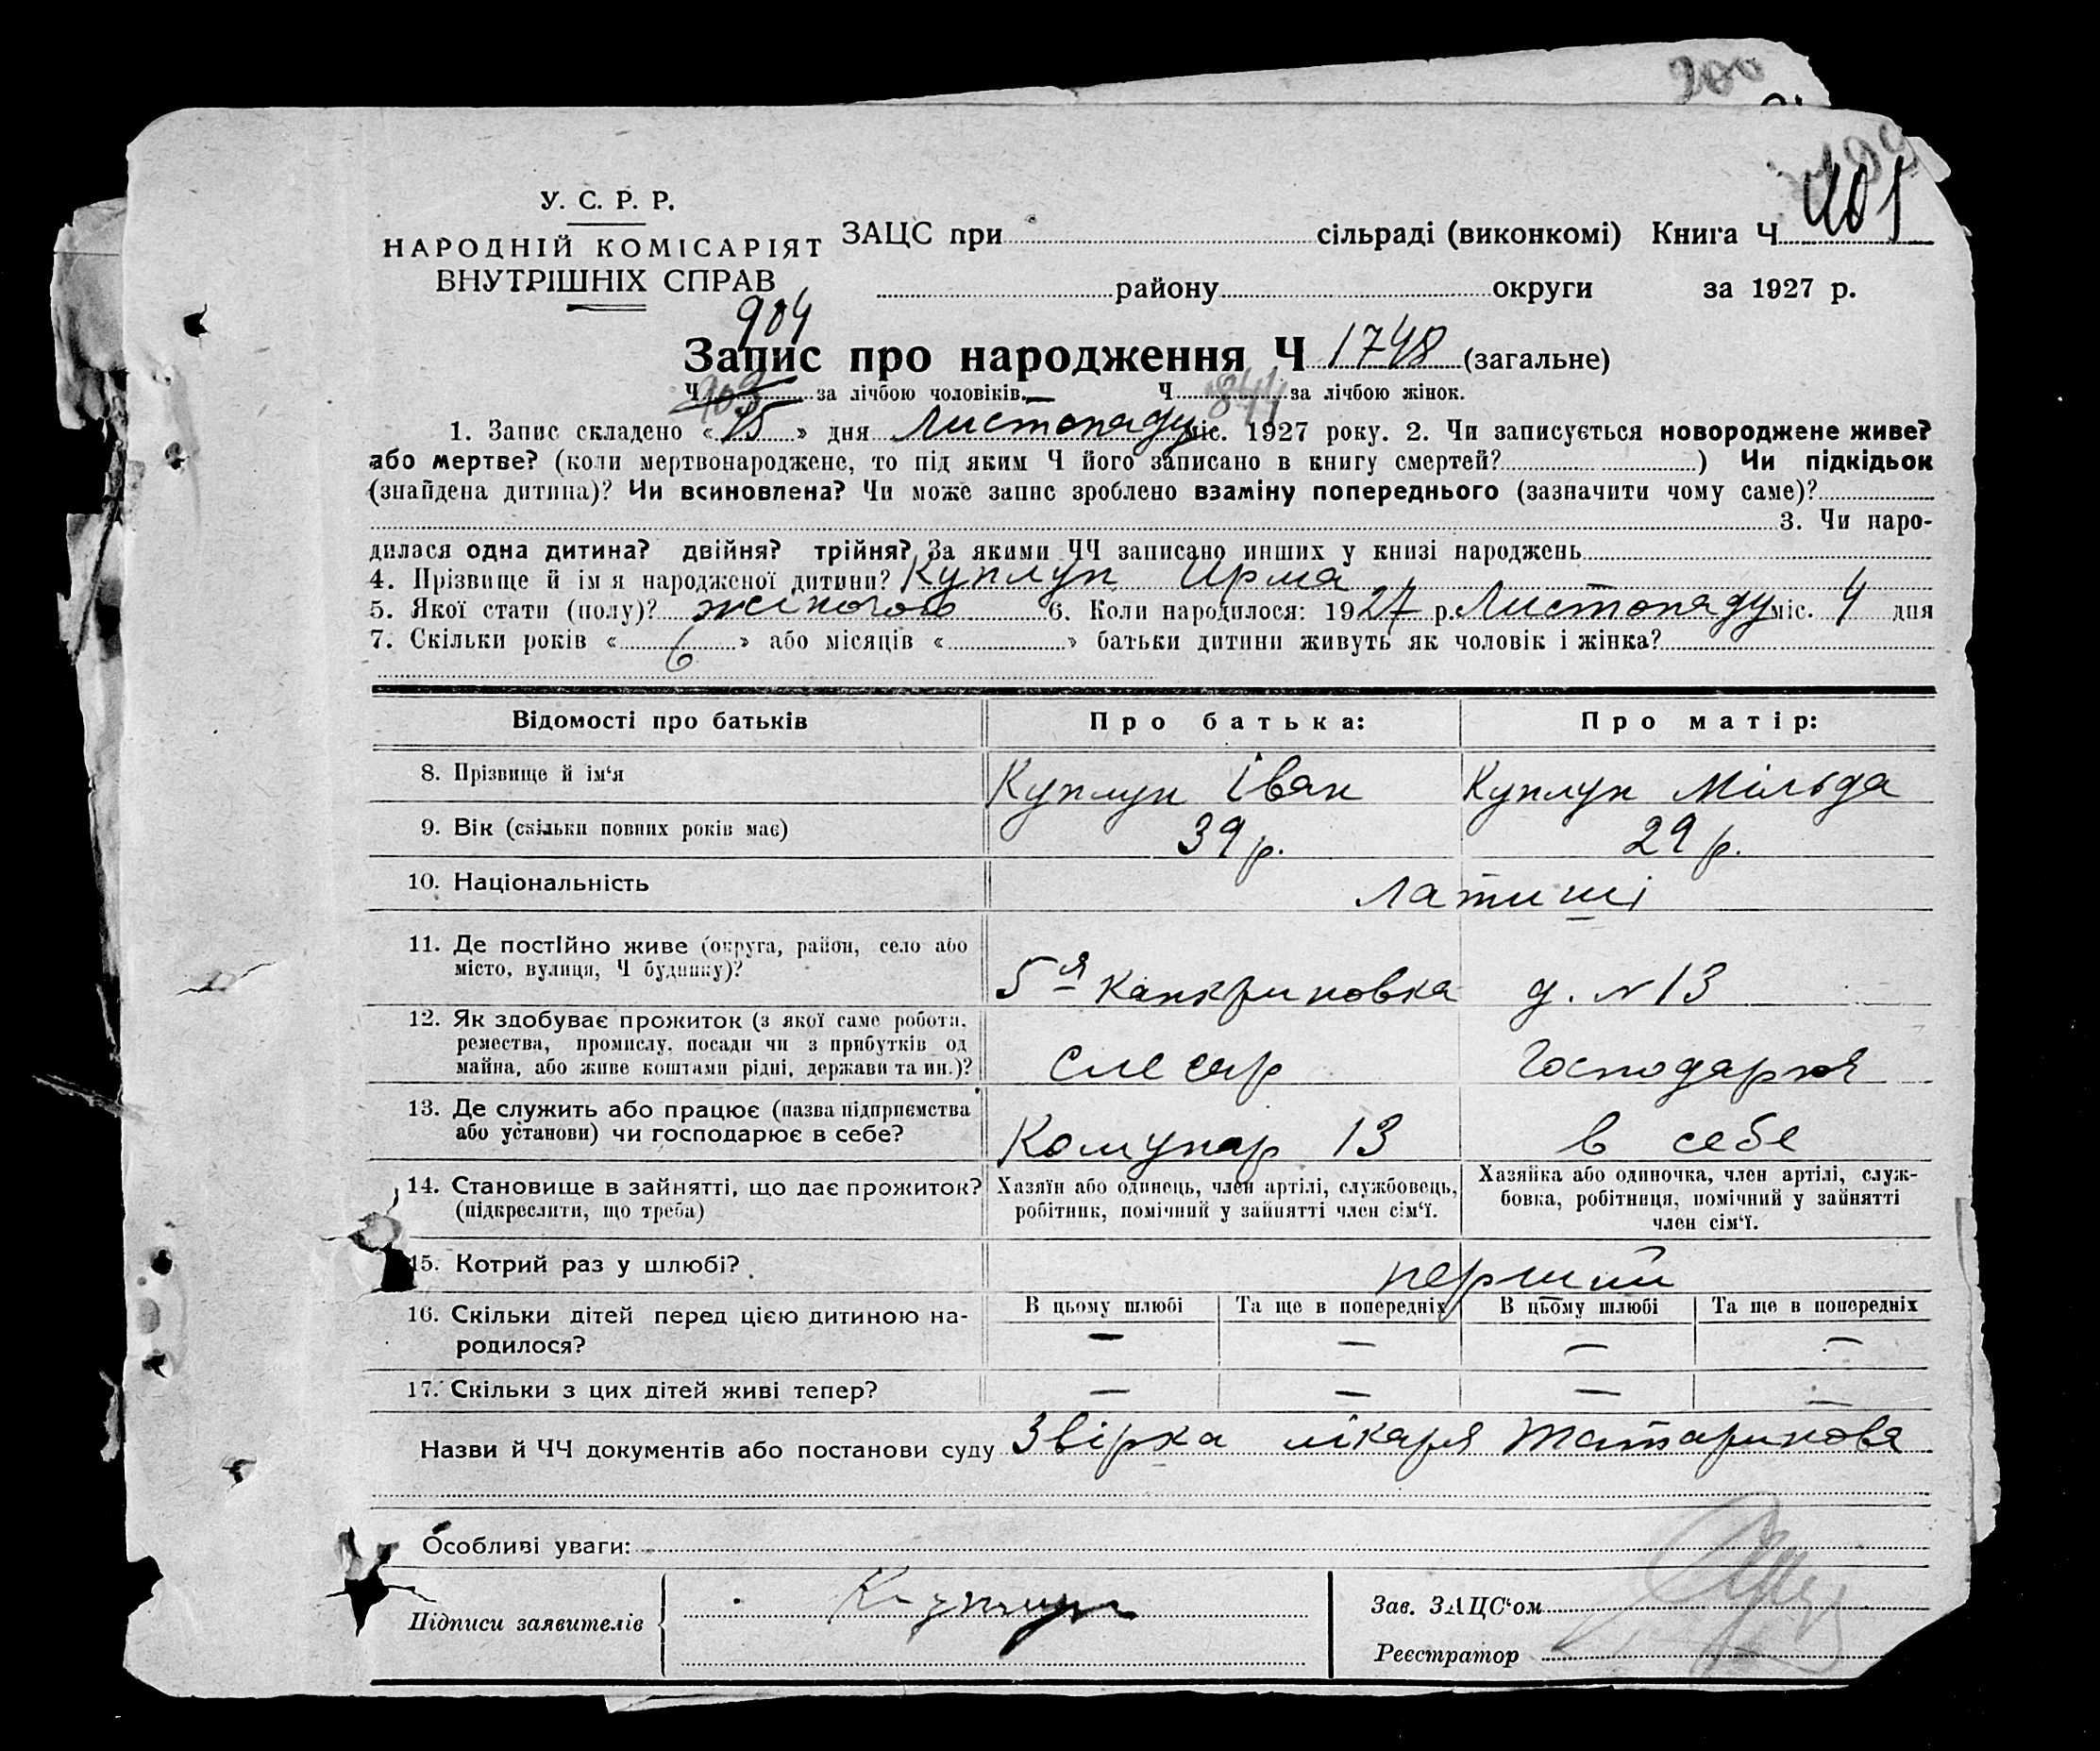 200
199
401
У. С. Р. Р.
НАРОДНІЙ КОМІСАРІЯТ
ВНУТРІШНІХ СПРАВ
ЗАЦС при сільраді (виконкомі) Книга Ч
району округи за 1927 р.
904
Запис про народження Ч 1748 (загальне)
Ч 903 за лічбою чоловіків. — Ч 844 за лічбою жінок.
1. Запис складено « 15 » дня Листопаду міс. 1927 року. 2. Чи записується новороджене живе?
або мертве? (коли мертвонароджене, то під яким Ч його записано в книгу смертей? ) Чи підкідьок
(знайдена дитина)? Чи всиновлена? Чи може запис зроблено взаміну попереднього (зазначити чому саме)?
3. Чи наро-
дилася одна дитина? двійня? трійня? За якими ЧЧ записано инших у книзі народжень
4. Прізвище й ім я народженої дитини? Куплун Ирма
5. Якої стати (полу)? жіночого 6. Коли народилося: 1927 р. Листопаду міс. 4 дня
7. Скільки років « 6 » або місяців « » батьки дитини живуть як чоловік і жінка?
Відомості про батьків Про батька: Про матір:
8. Прізвище й ім‘я Куплун Іван Куплун Мільда
9. Вік (скільки повних років має) 39 р. 29 р.
10. Національність Латиші
11. Де постійно живе (округа, район, село або
місто, вулиця, Ч будинку)? 5я Канкриновка д. N 13
12. Як здобуває прожиток (з якої саме роботи,
ремества, промислу, посади чи з прибутків од
майна, або живе коштами рідні, держави та ин.)? слесар Господарня
13. Де служить або працює (назва підприємства
або установи) чи господарює в себе? Комунар 13 в себе
14. Становище в зайнятті, що дає прожиток?
(підкреслити, що треба)
Хазяїн або одинець, член артілі, службовець,
робітник, помічний у зайнятті член сім‘ї.
Хазяйка або одиночка, член артілі, служ-
бовка, робітниця, помічний у зайнятті
член сім‘ї.
15. Котрий раз у шлюбі? перший
16. Скільки дітей перед цією дитиною на-
родилося?
В цьому шлюбі Та ще в попередніх В цьому шлюбі Та ще в попередніх
— — — —
17. Скільки з цих дітей живі тепер? — — — —
Назви й ЧЧ документів або постанови суду Звірка лікаря Татаринова
Особливі уваги:
Підписи заявителів Куплун
Зав. ЗАЦС‘ом
Реєстратор